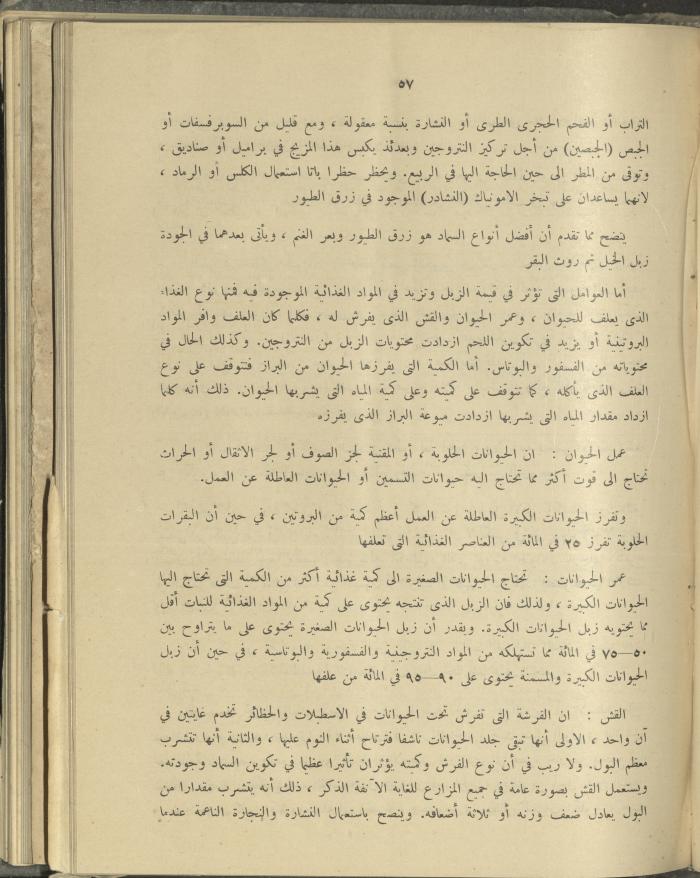 ٥٧
التراب أو الفحم الحجرى الطرى أو النشارة بنسبة معقولة ، ومع قليل من السوبرفسفات أو
الجبص (الجبصين) من أجل تركيز النتروجين وبعدئذ يكبس هذا المزيج في براميل أو صناديق ،
وتوقى من المطر الى حين الحاجة اليها في الربيع. ويحظر حظرا باتا استعمال الكلس أو الرماد ،
لانهما يساعدان على تبخر الامونياك (النشادر) الموجود في زرق الطيور
يتضح مما تقدم أن أفضل أنواع السماد هو زرق الطيور وبعر الغنم ، ويأتى بعدهما في الجودة
زبل الخيل ثم روث البقر
أما العوامل التى تؤثر في قيمة الزبل وتزيد في المواد الغذائية الموجودة فيه فمنها نوع الغذاء
الذى يعلف للحيوان ، وعمر الحيوان والقش الذى يفرش له ، فكلما كان العلف وافر المواد
البروتينية أو يزيد في تكوين اللحم ازدادت محتويات الزبل من النتروجين. وكذلك الحال في
محتوياته من الفسفور والبوتاس. أما الكمية التى يفرزها الحيوان من البراز فتتوقف على نوع
العلف الذى يأكله ، كما تتوقف على كميته وعلى كمية المياه التى يشربها الحيوان. ذلك أنه كلما
ازداد مقدار المياه التى يشربها ازدادت ميوعة البراز الذى يفرزه
عمل الحيوان : ان الحيوانات الحلوبة ، أو المقنية لجز الصوف أو لجر الاثقال أو الحراث
تحتاج الى قوت أكثر مما تحتاج اليه حيوانات التسمين أو الحيوانات العاطلة عن العمل.
وتفرز الحيوانات الكبيرة العاطلة عن العمل أعظم كمية من البروتين ، في حين أن البقرات
الحلوبة تفرز ٢٥ في المائة من العناصر الغذائية التى تعلفها
عمر الحيوانات : تحتاج الحيوانات الصغيرة الى كمية غذائية أكثر من الكمية التى تحتاج اليها
الحيوانات الكبيرة ، ولذلك فان الزبل الذى تنتجه يحتوى على كمية من المواد الغذائية للنبات أقل
مما يحتويه زبل الحيوانات الكبيرة. ويقدر أن زبل الحيوانات الصغيرة يحتوى على ما يتراوح بين
٥٠—٧٥ في المائة مما تستهلكه من المواد النتروجينية والفسفورية والبوتاسية ، في حين أن زبل
الحيوانات الكبيرة والمسمنة يحتوى على ٩٠—٩٥ في المائة من علفها
القش : ان الفرشة التى تفرش تحت الحيوانات في الاسطبلات والحظائر تخدم غايتين في
آن واحد ، الاولى أنها تبقى جلد الحيوانات ناشفا فترتاح أثناء النوم عليها ، والثانية أنها تتشرب
معظم البول. ولا ريب في أن نوع الفرش وكميته يؤثران تأثيرا عظيما في تكوين السماد وجودته.
ويستعمل القش بصورة عامة في جميع المزارع للغاية الآنفة الذكر ، ذلك أنه يتشرب مقدارا من
البول يعادل ضعف وزنه أو ثلاثة أضعافه. وينصح باستعمال النشارة والنجارة الناعمة عندما